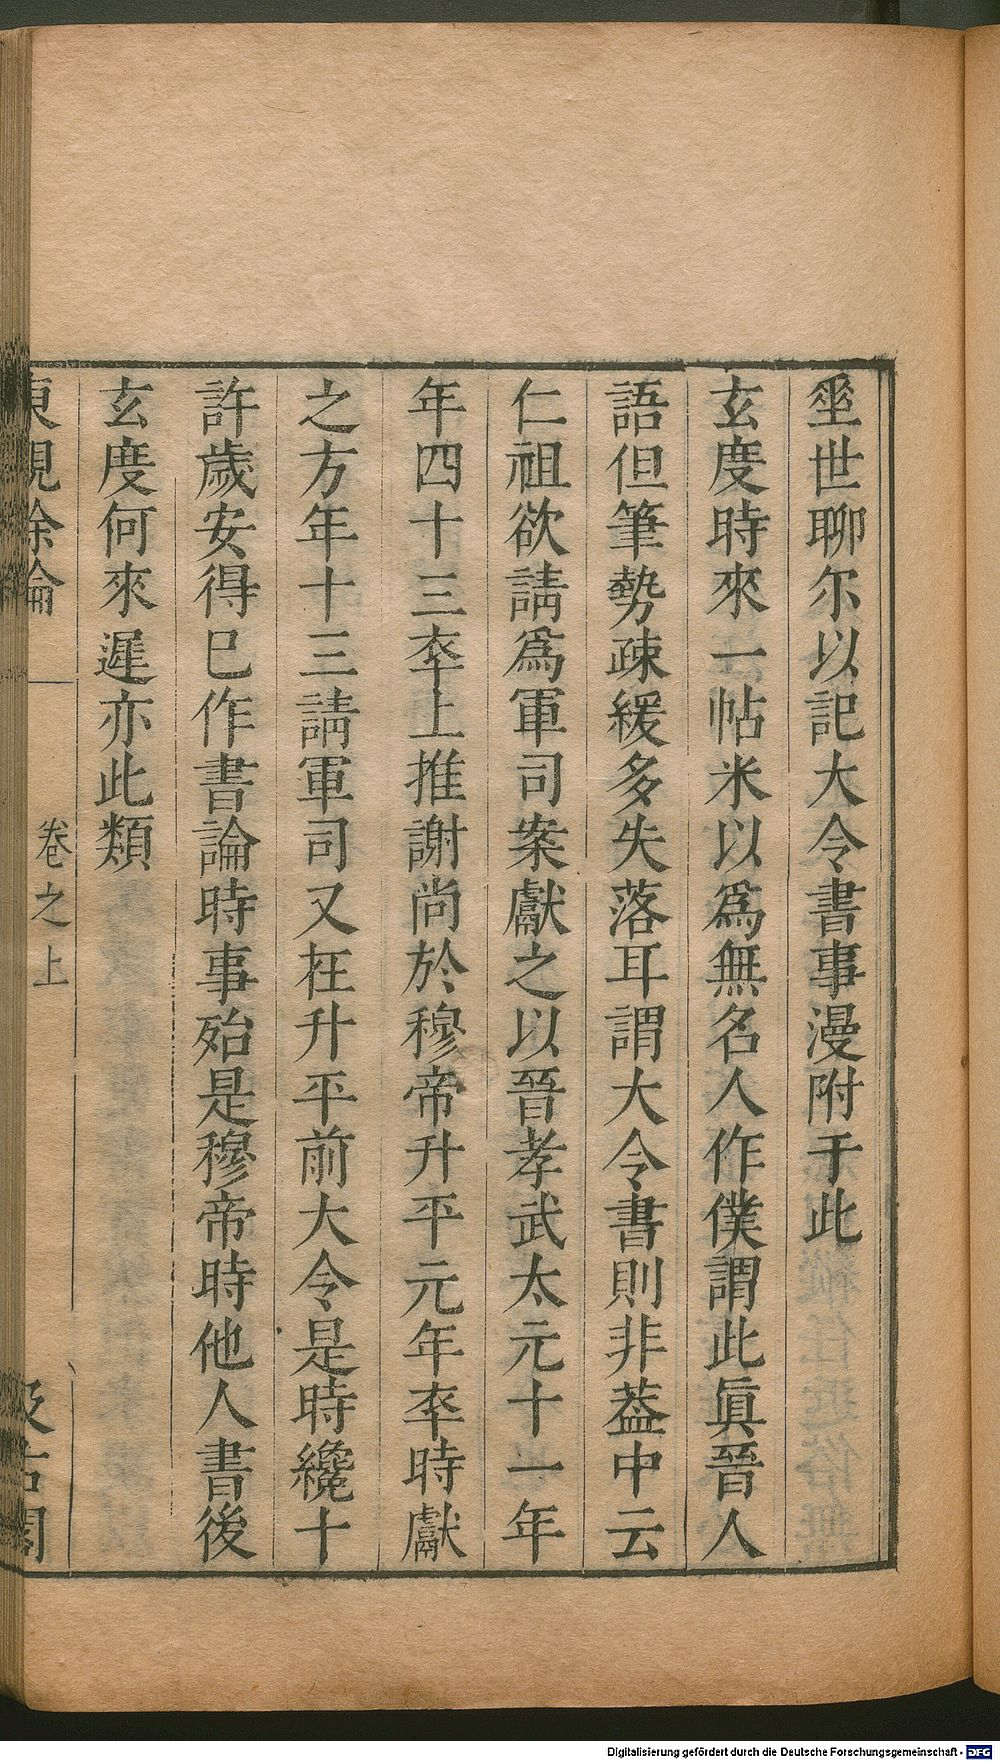 坐世聊尔以記大令書事漫附于此
玄度時來一帖米以爲無名人作僕謂此眞晉人
語但筆勢疎緩多失落耳謂大令書則非葢中云
仁祖欲請爲軍司案獻之以晉孝武太元十一年
年四十三卒上推謝尚於穆帝升平元年卒時獻
之方年十三請軍司又在升平前大令是時纔十
許歲安得巳作書論時事殆是穆帝時他人書後
玄度何來遲亦此類
東觀餘論
卷之上
汲古閣
Digitalisierung gefördert durch die Deutsche Forschungsgemeinschaft - DFG